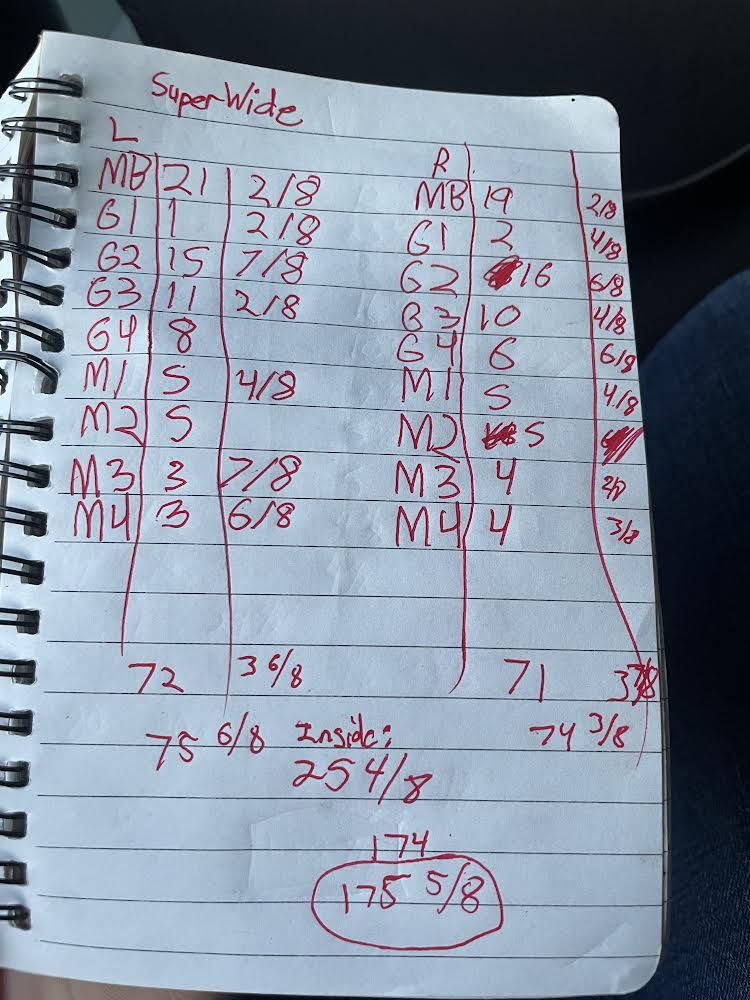 SuperWide
L R
MB 21 2/8 MB 19 2/8
G1 1 2/8 G1 2 4/8
G2 15 7/8 G2 16 6/8
G3 11 2/8 G3 10 4/8
G4 8 G4 6 6/8
M1 5 4/8 M1 5 4/8
M2 5 M2 5
M3 3 7/8 M3 4
M4 3 6/8 M4 4 3/8
72 3 6/8 71
75 6/8 Inside: 74 3/8
25 4/8
174
175 5/8